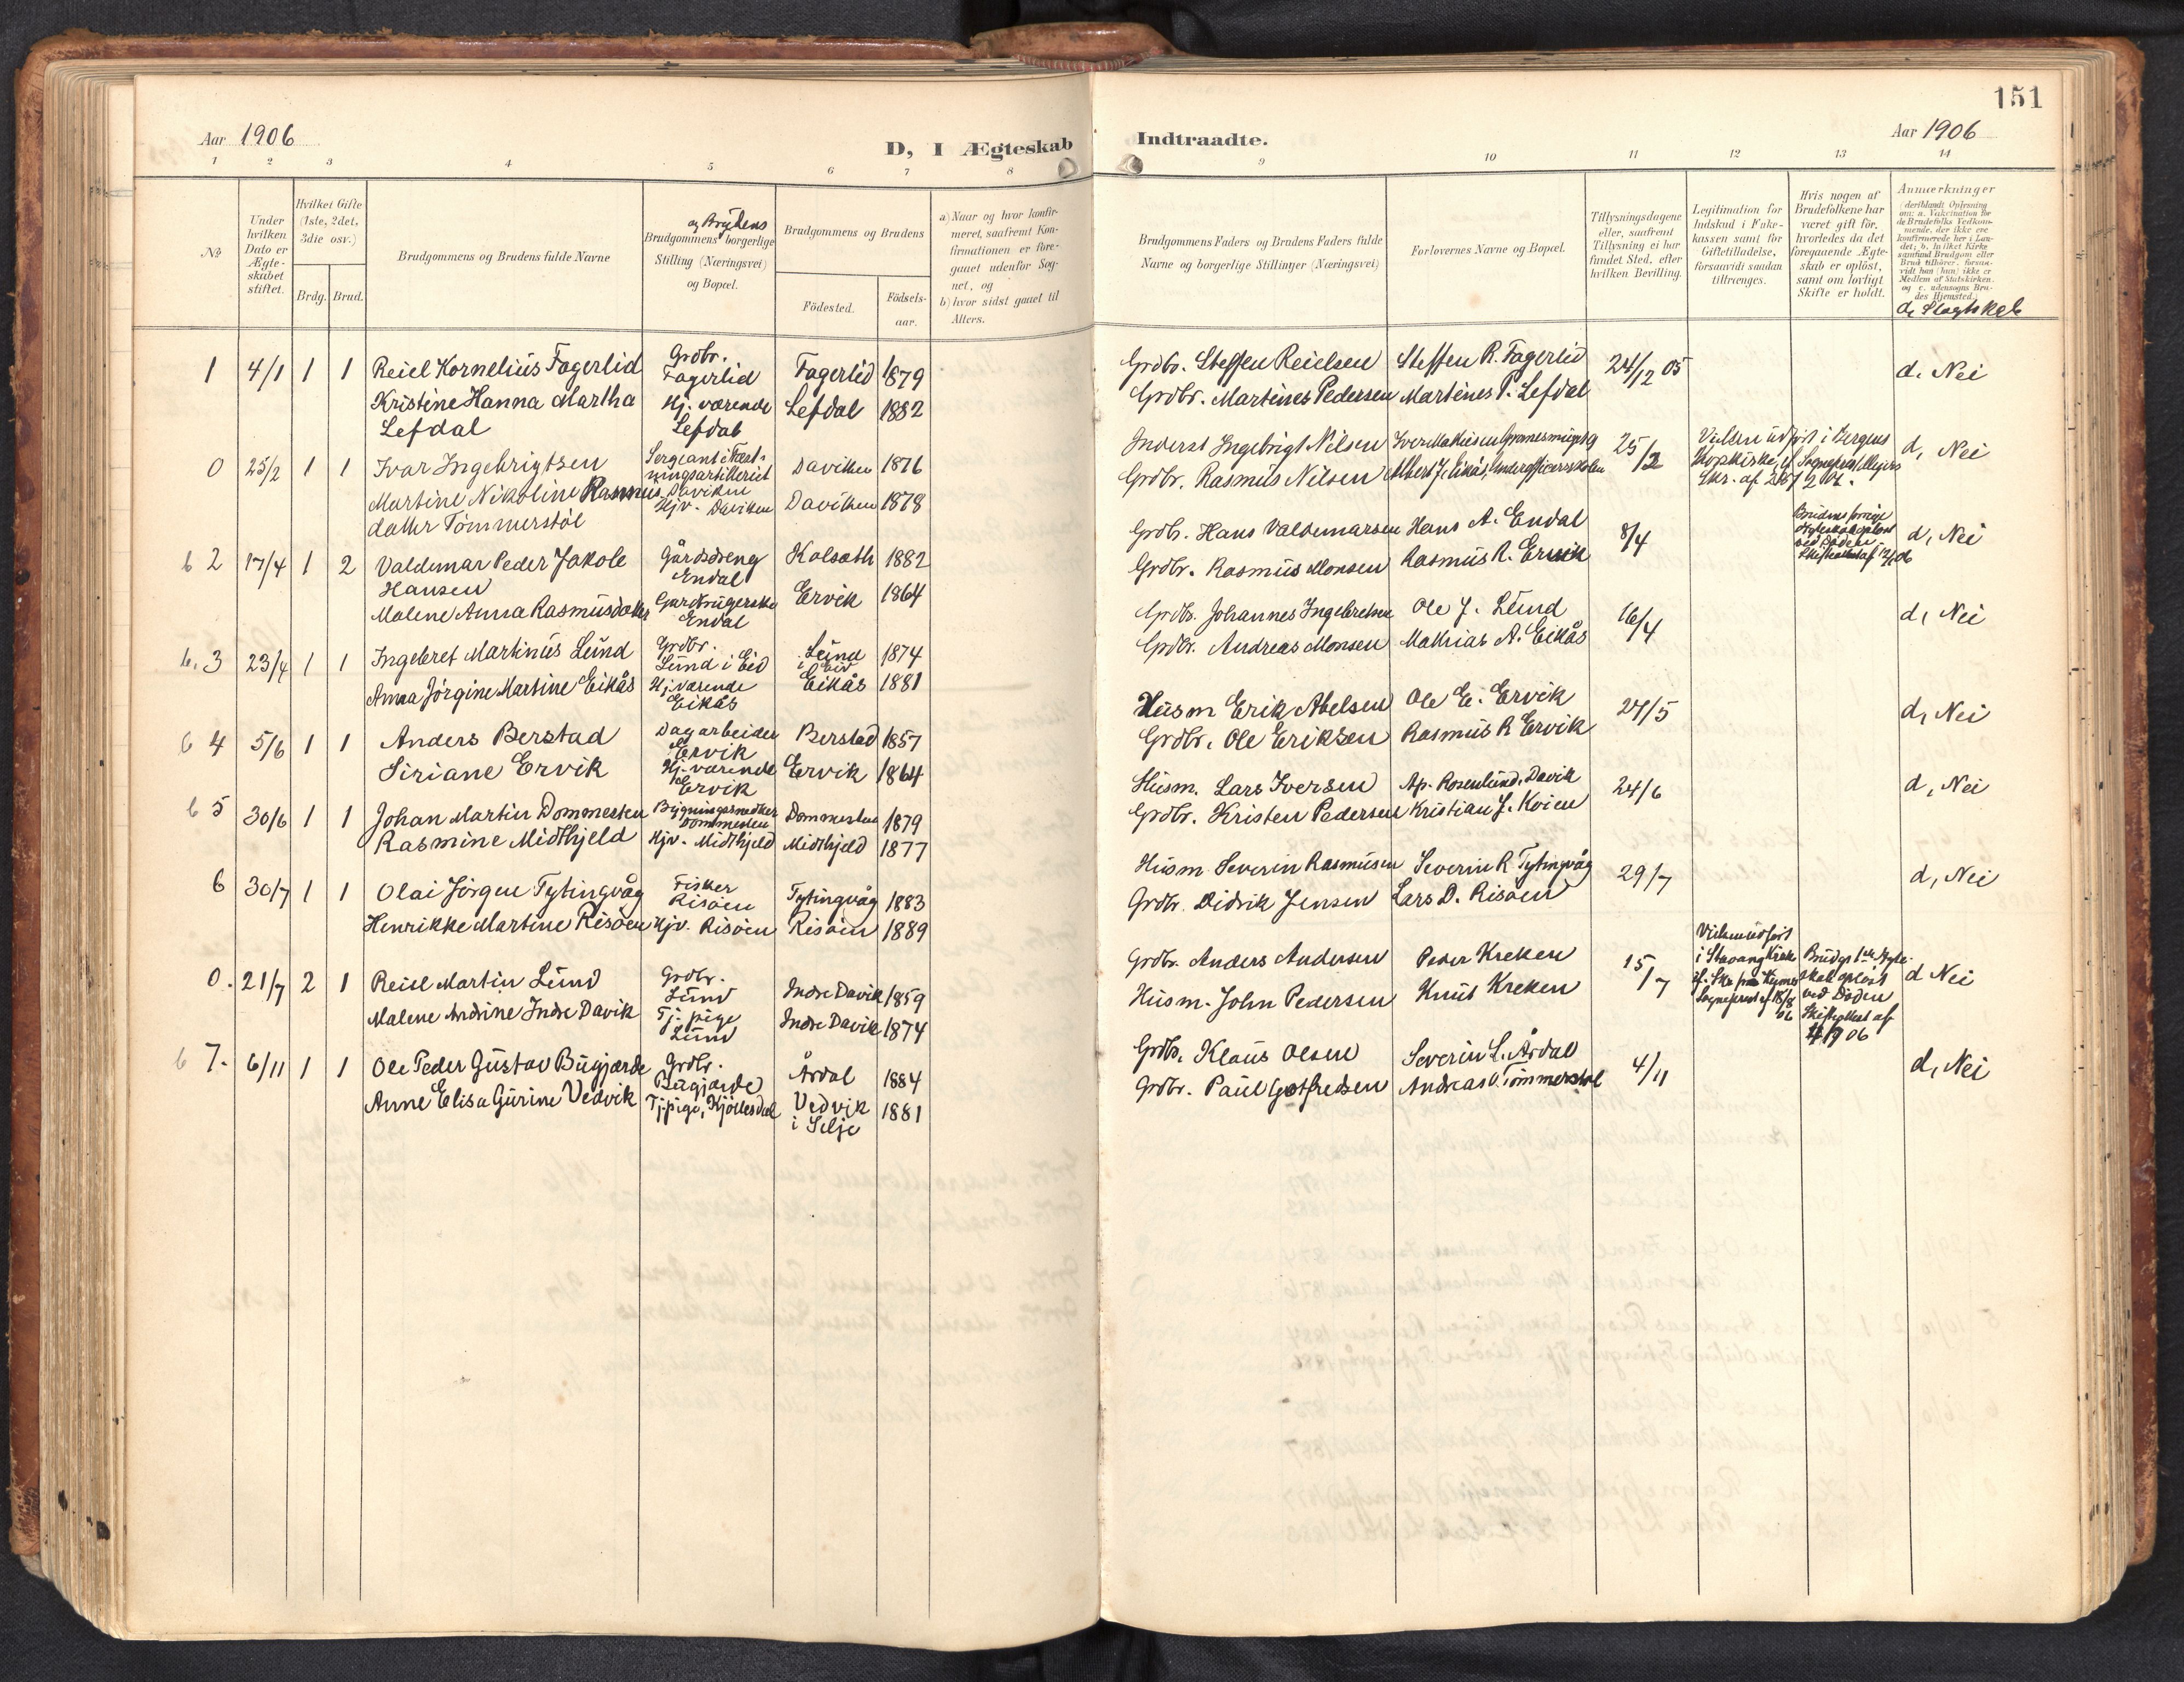 151
Aar 1906
D, I Ægteskab
Indtraadte.
Aar 1906
1 2 3 4 5 6 7 8
9 10 11 12 13 14
No
Under hvilken Dato er Ægteskabet stiftet.
Hvilket Gifte (1ste, 2det, 3die osv.)
Brdg. Brud.
Brudgommens og Brudens fulde Navne
og Brudens
Brudgommens borgerlige Stilling (Næringsvei) og Bopæl.
Brudgommens og Brudens
Fødested.
Fødselsaar.
a) Naar og hvor konfirmeret, saafremt Konfirmationen er foregaaet udenfor Sognet, og
b) hvor sidst gaaet til Alters.
Brudgommens Faders og Brudens Faders fulde Navne og borgerlige Stillinger (Næringsvei)
Forlovernes Navne og Bopæl.
Tillysningsdagene eller, saafremt Tillysning ei har fundet Sted, efter hvilken Bevilling.
Legitimation for Indskud i Enkekassen samt for Giftetilladelse, forsaavidt saadan tiltrænges.
Hvis nogen af Brudefolkene har været gift før, hvorledes da det foregaaende Ægteskab er opløst, samt om lovligt Skifte er holdt.
Anmærkninger (deriblandt Oplysning om: a. Vakcination for de Brudefolks Vedkommende, der ikke ere konfirmerede her i Landet; b. hvilket Kirkesamfund Brudgom eller Brud tilhører, forsaavidt han (hun) ikke er Medlem af Statskirken, og c. udensogns Brudes Hjemsted.)
d, Slægtskab
1 4/1 1 1 Reiel Kornelius Fagerlid Grdbr. Fagerlid Fagerlid 1879
Kristine Hanna Martha Lefdal Hj. værende Lefdal Lefdal 1882
Grdbr. Steffen Reielsen Steffen R. Fagerlid 24/12 05 d. Nei
Grdbr. Martines Pedersen Martines P. Lefdal
0 25/2 1 1 Ivar Ingebrigtsen Sergeant i Fæstningsartilleriet Daviken Daviken 1876
Martine Nikoline Rasmusdatter Tömmerstöl Hjv. Daviken Daviken 1878
Inderst Ingebrigt Nilsen 25/2 d, Nei
Grdbr. Rasmus Nilsen Albert J. Eikås, Underofficersskolen
Vielsen udført i Bergens
b 2 17/4 1 2 Valdemar Peder Jakob Hansen Gårdsdreng Endal Kolseth 1882
Malene Anna Rasmusdatter Gardbrugerske Endal Ervik 1864
Grdbr. Hans Valdemarsen Hans A. Endal 8/4 d, Nei
Grdbr. Rasmus Monsen Rasmus R. Ervik
Brudens forrige Ægteskab opløst ved Döden
b. 3 23/4 1 1 Ingebret Martinus Lund Grdbr. Lund i Eid Lund i Eid 1874
Anna Jörgine Martine Eikås Hj. værende Eikås Eikås 1881
Grdbr. Johannes Ingebretsen Ole J. Lund 16/4 d, Nei
Grdbr. Andreas Monsen Mathias A. Eikås
b 4 5/6 1 1 Anders Berstad Dagarbeider Ervik Berstad 1857
Siriane Ervik Hj. værende Ervik Ervik 1864
Husm Erik Abelsen Ole E. Ervik 27/5 d, Nei
Grdbr. Ole Eriksen Rasmus R Ervik
b 5 30/6 1 1 Johan Martin Dommesten Bygningssnedker Dommesten Dommesten 1879
Rasmine Midthjeld Hjv. Midthjeld Midthjeld 1877
Husm. Lars Iversen Ap. Rosenlund, Davik 24/6 d, Nei
Grdbr. Kristen Pedersen Kristian J. Koien
6 30/7 1 1 Olai Jörgen Tytingvåg Fisker Risöen Tytingvåg 1883
Henrikke Martine Risöen Hjv. Risöen Risöen 1889
Husm. Severin Rasmusen Severin R. Tytingvåg 29/7 d, Nei
Grdbr. Didrik Jensen Lars D. Risöen
0. 21/7 2 1 Reiel Martin Lund Grdbr. Lund Indre Davik 1859
Malene Andrine Indre Davik Tj. pige Lund Indre Davik 1874
Grdbr. Anders Andersen Peder Kreken 15/7 d Nei
Husm. John Pedersen Knut Kreken
Vielsen udført i Stavang Kirke
Brudgs 1ste Ægteskab opløst ved Döden
b 7. 6/11 1 1 Ole Peder Gustav Bugjærde Grdbr. Bugjærde Årdal 1884
Anne Elisa Gurine Vedvik Tj. pige, Kjöllesdal Vedvik i Selje 1881
Grdbr. Klaus Olsen Severin L. Årdal 4/11 d, Nei
Grdbr. Paul Gotfredsen Andreas O. Tömmerstöl